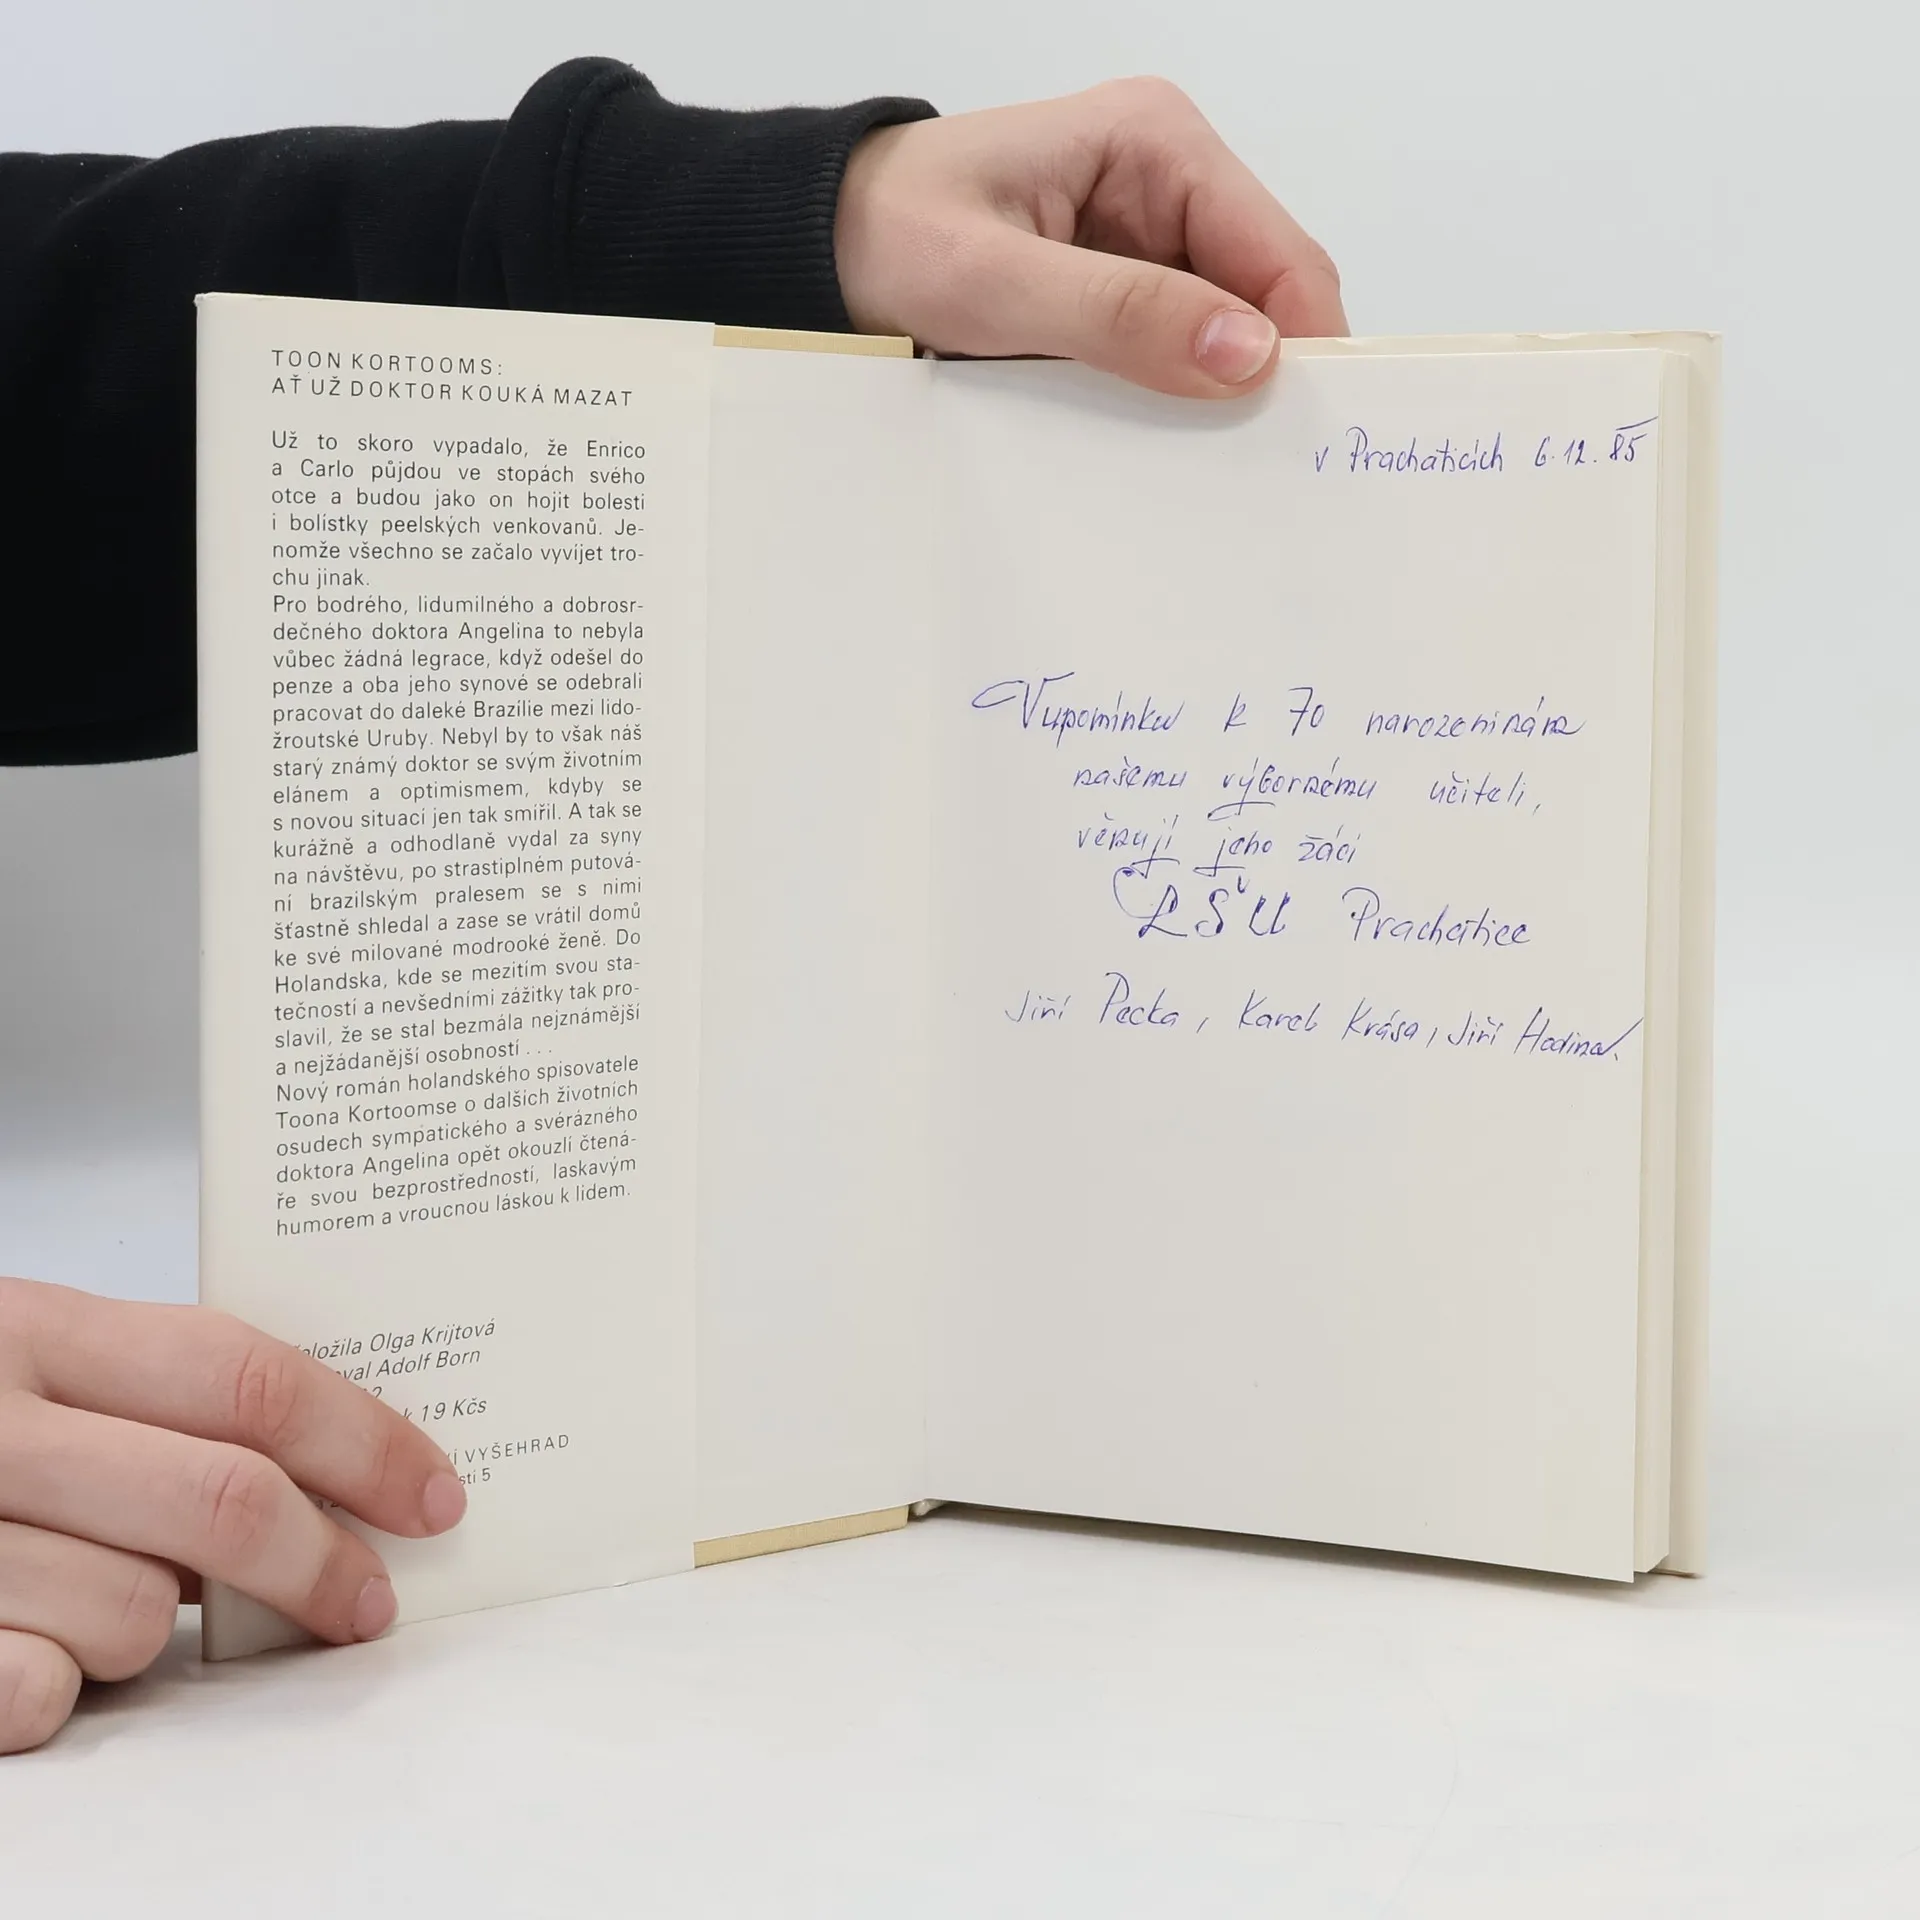 TOON KORTOOMS:
AŤ UŽ DOKTOR KOUKÁ MAZAT
Už to skoro vypadalo, že Enrico
a Carlo půjdou ve stopách svého
otce a budou jako on hojit bolesti
i bolístky peelských venkovanů. Je-
nomže všechno se začalo vyvíjet tro-
chu jinak.
Pro bodrého, lidumilného a dobrosr-
dečného doktora Angelina to nebyla
vůbec žádná legrace, když odešel do
penze a oba jeho synové se odebrali
pracovat do daleké Brazílie mezi lido-
žroutské Uruby. Nebyl by to však náš
starý známý doktor se svým životním
elánem a optimismem, kdyby se
s novou situací jen tak smířil. A tak se
kurážně a odhodlaně vydal za syny
na návštěvu, po strastiplném putová-
ní brazilským pralesem se s nimi
šťastně shledal a zase se vrátil domů
ke své milované modrooké ženě. Do
Holandska, kde se mezitím svou sta-
tečností a nevšedními zážitky tak pro-
slavil, že se stal bezmála nejznámější
a nejžádanější osobností . . .
Nový román holandského spisovatele
Toona Kortoomse o dalších životních
osudech sympatického a svérázného
doktora Angelina opět okouzlí čtená-
ře svou bezprostředností, laskavým
humorem a vroucnou láskou k lidem.
Olga Krijtová
Adolf Born
19 Kčs
VYŠEHRAD
5
v Prachaticích 6.12.85
Vzpomínku k 70 narozeninám
našemu výbornému učiteli,
věnují jeho žáci
LŠU Prachatice
Jiří Pecka, Karel Krása, Jiří Hodina.